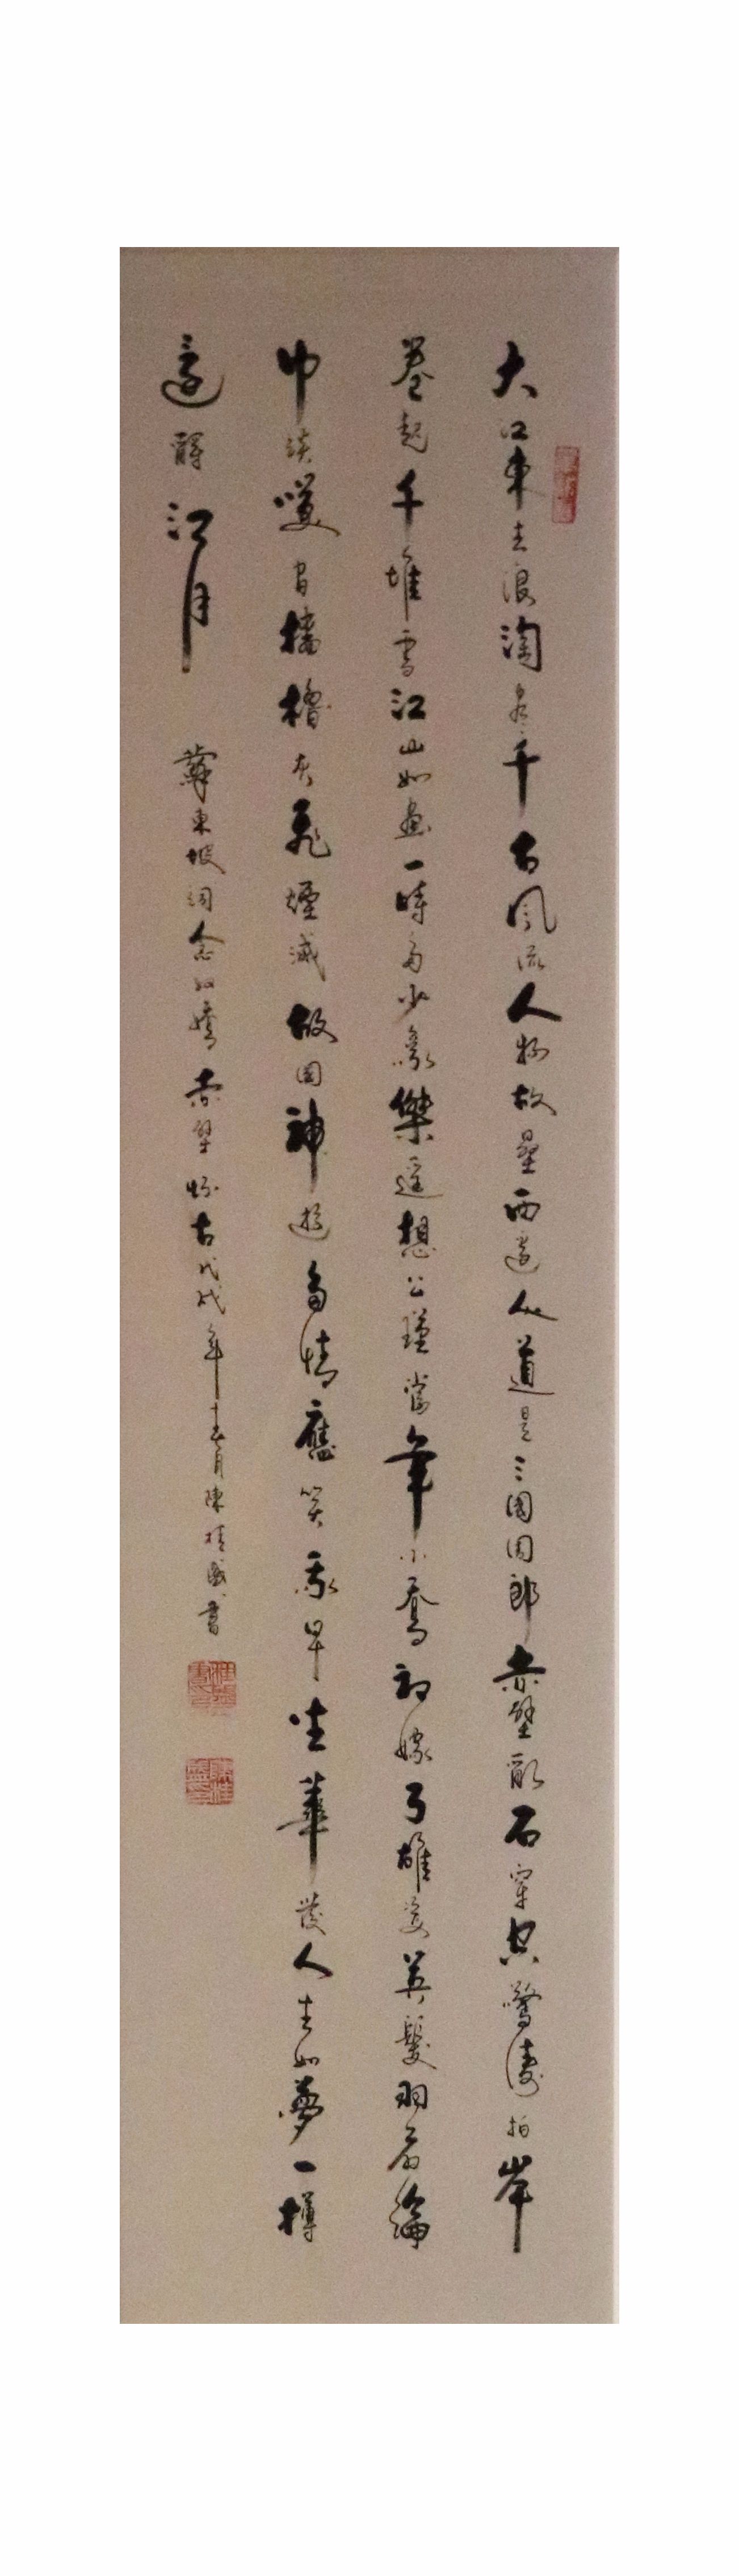 大江東去浪淘盡千古風流人物故壘西邊人道是三國周郎赤壁亂石穿空驚濤拍岸
卷起千堆雪江山如畫一時多少豪傑遙想公瑾當年小喬初嫁了雄姿英髮羽扇綸
巾談嘆間檣櫓灰飛煙滅故國神遊多情應笑我早生華髮人生如夢一樽
還酹江月
蘇東坡詞念奴嬌赤壁懷古戊戌年十一月陳桂盛書